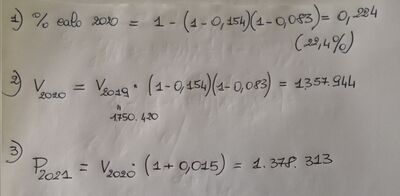 1) % calo 2020 = 1-(1-0,154)(1-0,083)= 0,224
(22,4%)
2) V2020 = V2019 · (1-0,154)(1-0,083) = 1357.944
"
1750.420
3) P2021 = V2020 · (1+0,015) = 1.378.313